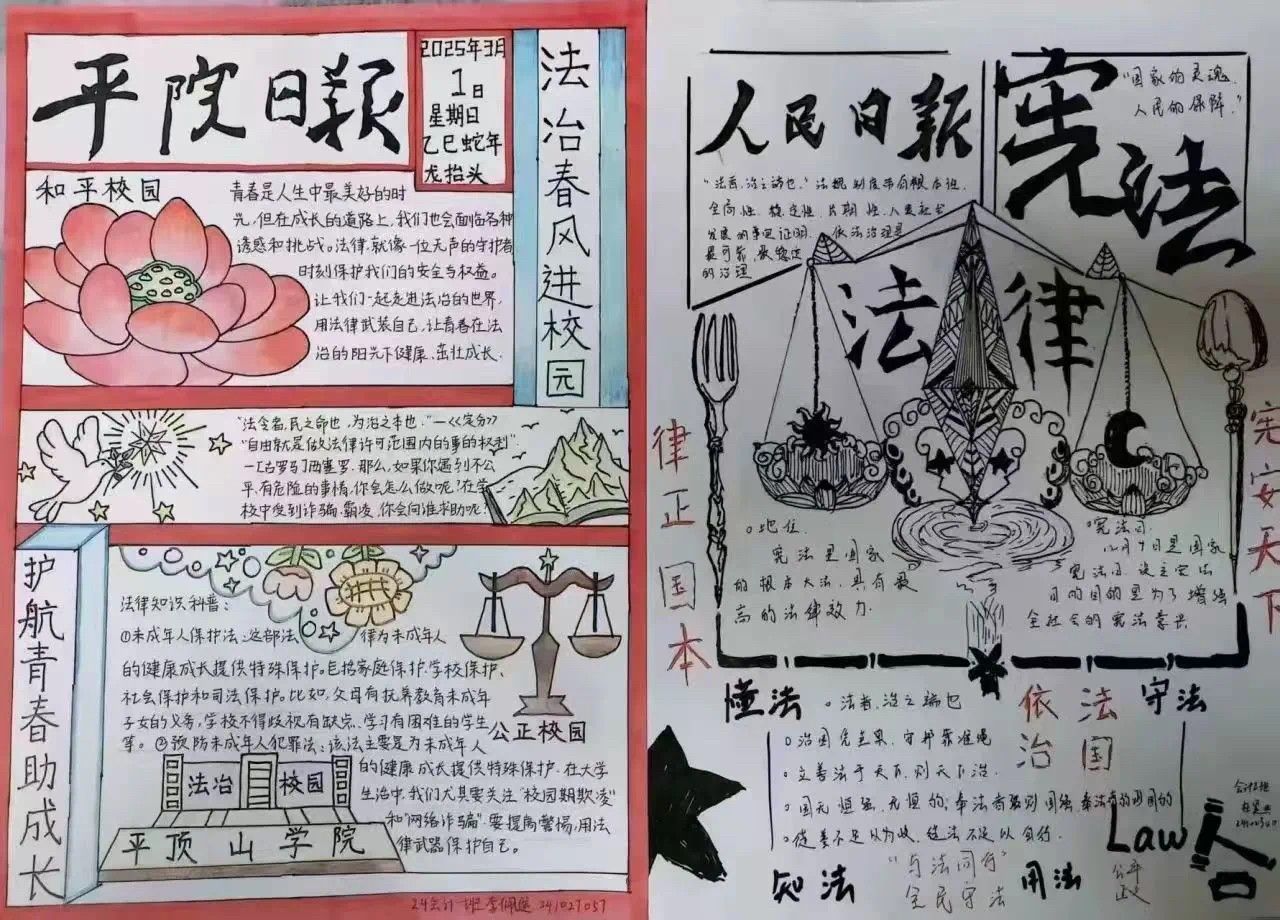 平院日报
2025年3月
1日
星期日
乙巳蛇年
龙抬头
法治春风进校园
和平校园
青春是人生中最美好的时
光,但在成长的道路上,我们也会面临各种
诱惑和挑战。法律,就像一位无声的守护者,
时刻保护我们的安全与权益。
让我们一起走进法治的世界,
用法律武装自己,让青春在法
治的阳光下健康、茁壮成长.
"法令者,民之命也,为治之本也."—<<定分>>
"自由就是做法律许可范围内的事的权利"
—[古罗马]西塞罗.那么,如果你遇到不公
平,有危险的事情,你会怎么做呢?在学
校中受到诈骗、霸凌,你会向谁求助呢?
护航青春助成长
法律知识科普:
①未成年人保护法:这部法律为未成年人
的健康成长提供特殊保护。包括家庭保护、学校保护、
社会保护和司法保护。比如,父母有抚养教育未成年
子女的义务,学校不得歧视有缺点、学习有困难的学生
等。②预防未成年人犯罪法:该法主要是为未成年人
的健康成长提供特殊保护.在大学
生活中,我们尤其要关注"校园期欺凌"
和"网络诈骗".要提高警惕,用法
律武器保护自己。
公正校园
法治 校园
平顶山学院
24会计一班 李佩 241027057
人民日报
宪法
"国家的灵魂,
人民的保障."
"法者,治之端也."法规制度带有根本性、
全局性、稳定性、长期性,人类社会
发展的事实证明,依法治理是
最可靠、最稳定
的治理
法律
律正国本
宪安天下
地位
宪法是国家
的根本大法,具有最
高的法律效力.
宪法日
12月4日是国家
宪法日,设立宪法
日的目的是为了增强
全社会的宪法意识
懂法
法者,治之端也
依法治国
守法
治国凭圭臬,守护靠准绳
立善法于天下,则天下治.
国无恒强,无恒弱,奉法者强则国强
徒善不足以为政,徒法不足以自行.
Law
公平
正义
知法
"与法同行"
全民守法
用法